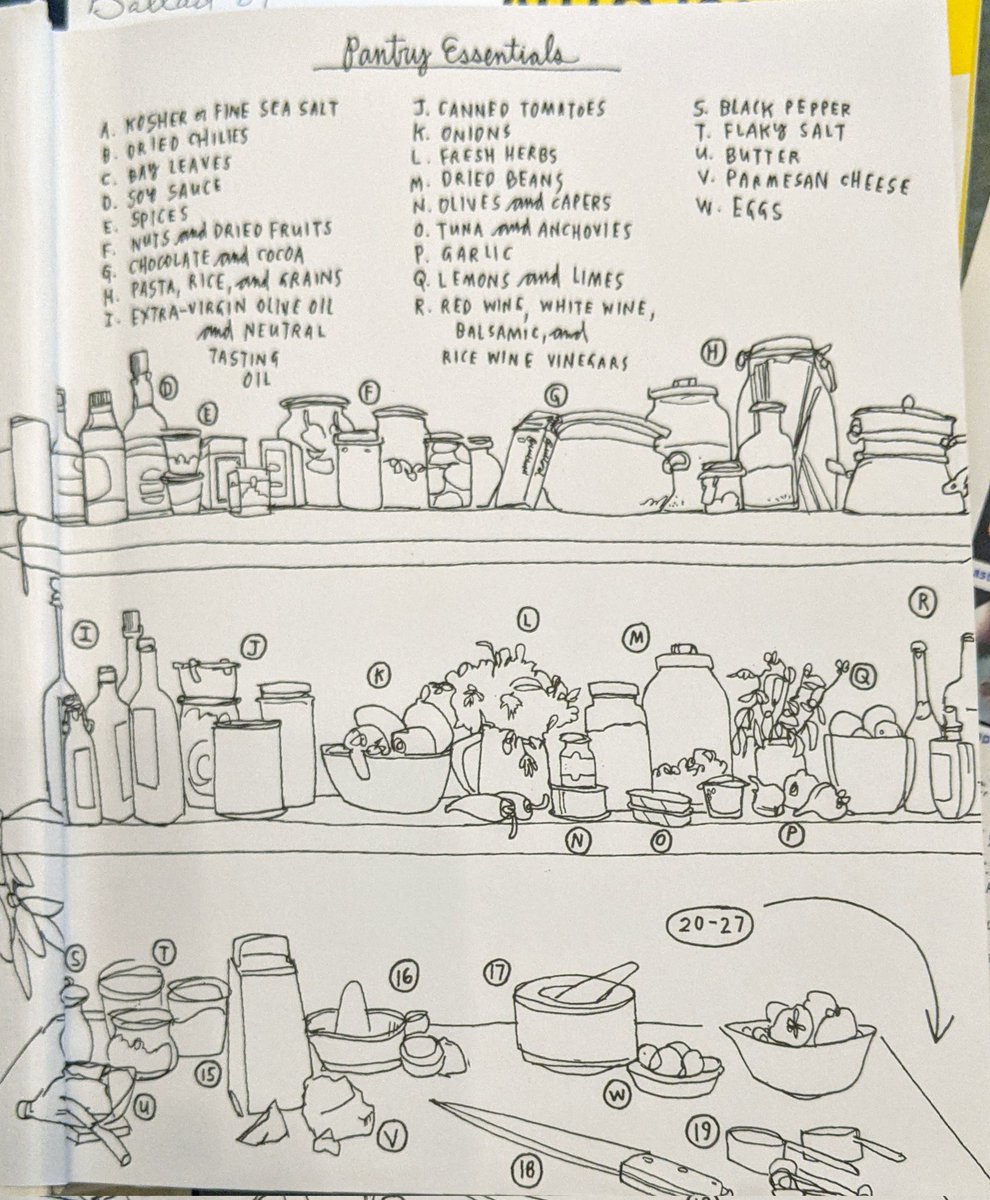 Ballad of
Pantry Essentials
A. KOSHER or FINE SEA SALT
B. DRIED CHILIES
C. BAY LEAVES
D. SOY SAUCE
E. SPICES
F. NUTS and DRIED FRUITS
G. CHOCOLATE and COCOA
H. PASTA, RICE, and GRAINS
I. EXTRA-VIRGIN OLIVE OIL
and NEUTRAL
TASTING
OIL
J. CANNED TOMATOES
K. ONIONS
L. FRESH HERBS
M. DRIED BEANS
N. OLIVES and CAPERS
O. TUNA and ANCHOVIES
P. GARLIC
Q. LEMONS and LIMES
R. RED WINE, WHITE WINE,
BALSAMIC, and
RICE WINE VINEGARS
S. BLACK PEPPER
T. FLAKY SALT
U. BUTTER
V. PARMESAN CHEESE
W. EGGS
D
E
F
G
H
I
J
K
L
M
Q
R
N
O
P
20-27
S
T
16
17
15
U
W
V
18
19